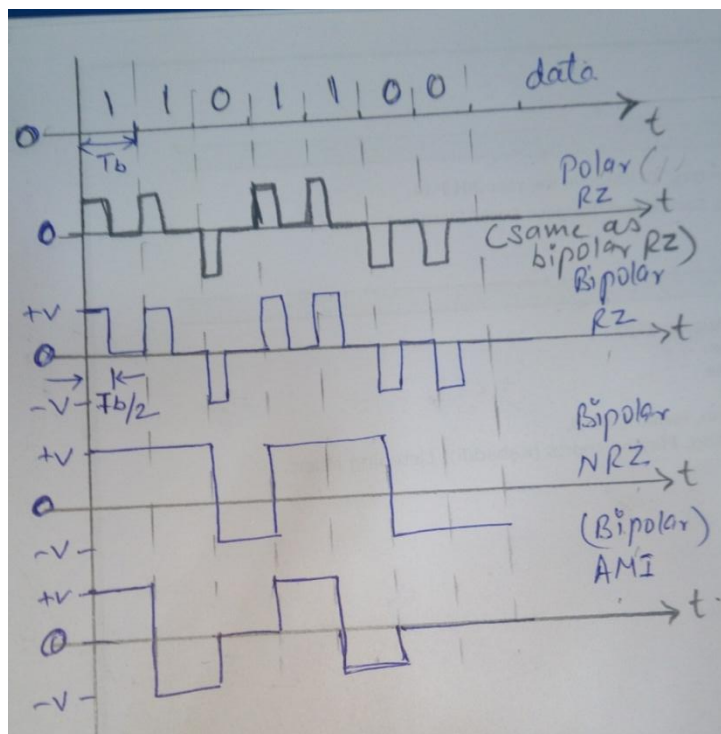 1 1 0 1 1 0 0 data
0 t
Tb
Polar
RZ t
0 (same as
bipolar RZ)
Bipolar
+V RZ
0 t
-V Tb/2
Bipolar
+V NRZ
0 t
-V (Bipolar)
AMI
+V
0 t
-V